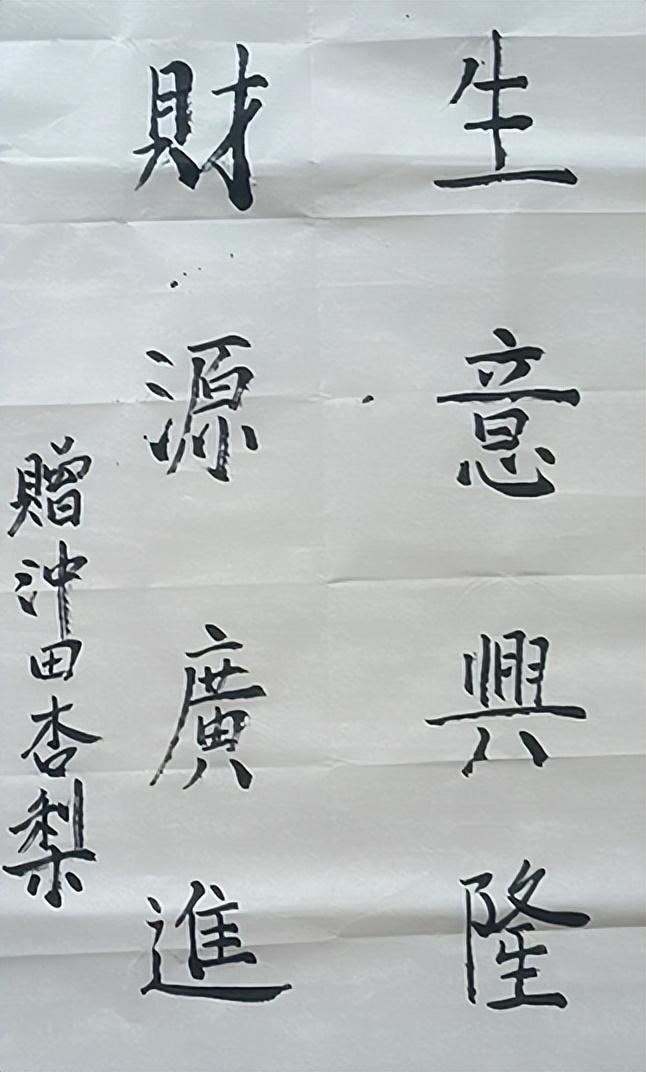 生意興隆
財源廣進
贈沖田杏梨